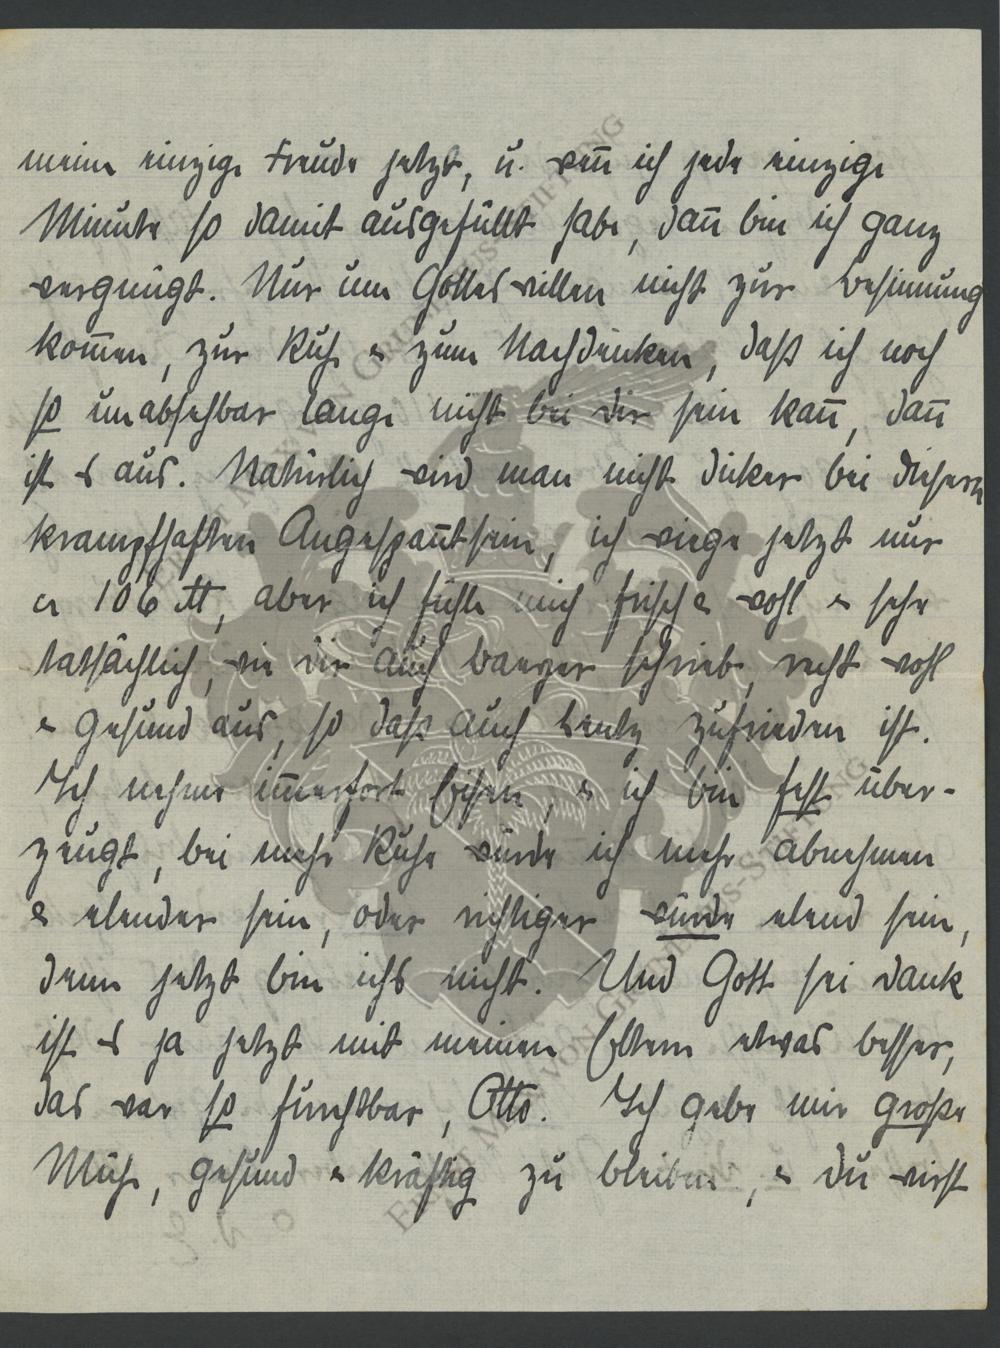 meine einzige Freude jetzt, u. weñ ich jede einzige
Minute so damit ausgefüllt habe, dañ bin ich ganz
vergnügt. Nur um Gottes willen nicht zur Besinnung
kom̄en, zur Ruhe & zum Nachdenken, daß ich noch
so unabsehbar lange nicht bei dir sein kañ, dañ
ist es aus. Natürlich wird man nicht dicker bei diesem
krampfhaften Angespañtsein, ich wiege jetzt nur
ca 106 ℔, aber ich fühle mich frisch & wohl & sehe
tatsächlich, wie dir auch schrieb, recht wohl
& gesund aus, so daß auch Lentz zufrieden ist.
Ich nehme im̄erfort Eisen, & ich bin fest über-
zeugt, bei mehr Ruhe würde ich mehr abnehmen
& elender sein, oder richtiger würde elend sein,
denn jetzt bin ichs nicht. Und Gott sei Dank
ist es ja jetzt mit meinen Eltern etwas besser,
das war so furchtbar, Otto. Ich gebe mir große
Mühe, gesund & kräftig zu bleiben, & du wirst